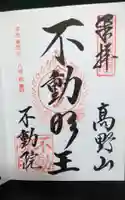 奉拝
高野山
不動明王
不動院